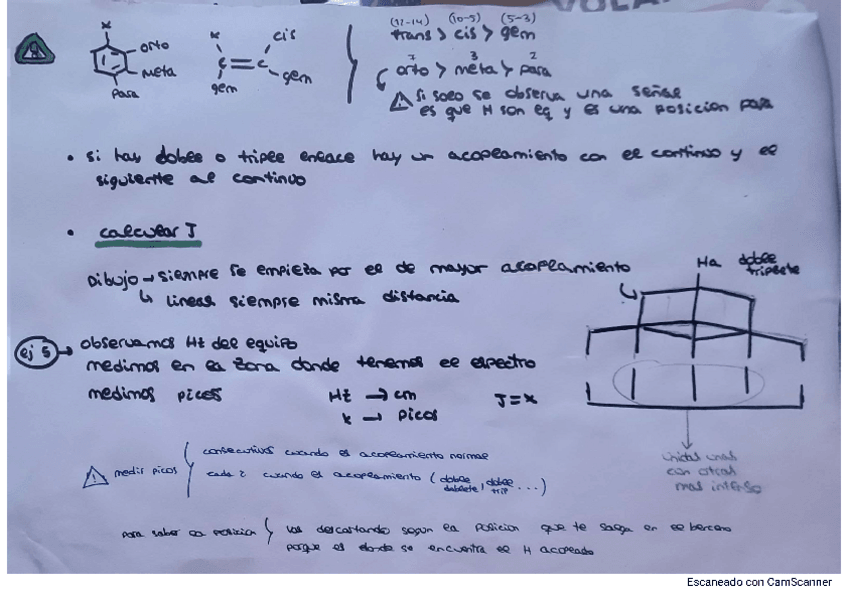 VOLA
(12-14) (10-5) (5-3)
trans > cis > gem
x
orto
meta
para
x
cis
C = C
gem
gem
7 3 2
orto > meta > para
Si solo se observa una señal
es que H son eq y es una posicion para
• si hay doble o triple enlace hay un acoplamiento con el continuo y el
siguiente al continuo
• calcular J
Dibujo → siempre se empieza por el de mayor acoplamiento
↳ lineas siempre misma distancia
Ha doble
triplete
ej 5 → observamos Hz del equipo
medimos en la zona donde tenemos el espectro
medimos picos
Hz → cm
x → picos
J = x
unidas unas
con otras
mas intenso
! medir picos
consecutivos cuando es acoplamiento normal
cada 2 cuando el acoplamiento (doble doblete, doble trip...)
para saber la posicion
las descartando segun la posicion que te salga en el benceno
porque es donde se encuentra el H acoplado
Escaneado con CamScanner